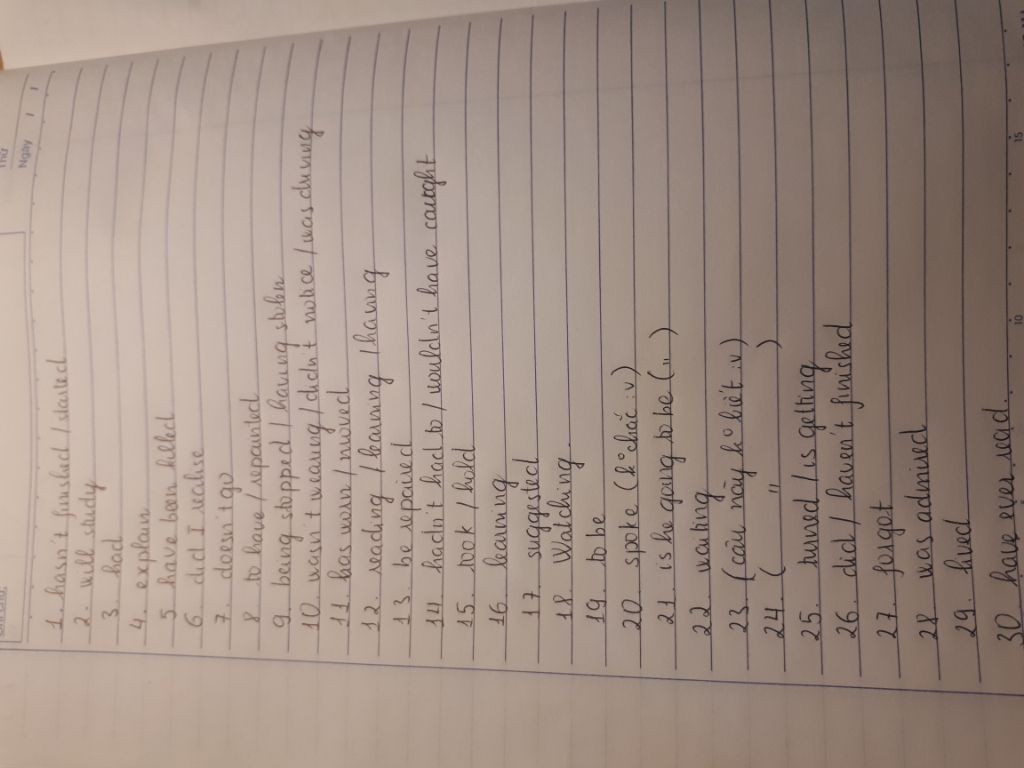 Thứ
Ngày / /
1. hasn't finished / started
2. will study
3. had
4. explain
5. have been killed
6. did I realise
7. doesn't go
8. to have / repainted
9. being stopped / having stolen
10. wasn't wearing / didn't notice / was driving
11. has risen / moved
12. reading / learning / having
13. be repaired
14. hadn't had to / wouldn't have caught
15. took / held
16. learning
17. suggested
18. Watching
19. to be
20. spoke (k° chắc :v)
21. is he going to be ( " )
22. waiting
23. (câu này k° biết :v)
24. ( " )
25. turned / is getting
26. did / haven't finished
27. forgot
28. was admired
29. lived
30. have ever read.
10 15